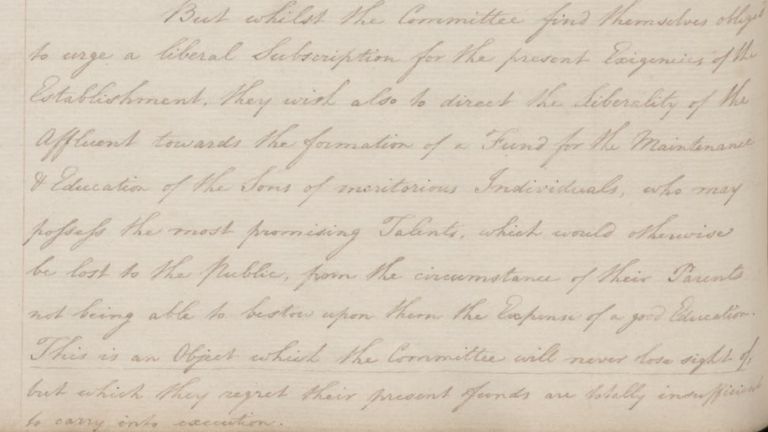 But whilst the Committee find themselves obliged
to urge a liberal Subscription for the present Exigencies of the
Establishment, they wish also to direct the liberality of the
Affluent towards the formation of a Fund for the Maintenance
& Education of the Sons of meritorious Individuals, who may
possess the most promising Talents, which would otherwise
be lost to the Public, from the circumstance of their Parents
not being able to bestow upon them the Expense of a good Education.
This is an Object which the Committee will never lose sight of,
but which they regret their present funds are totally insufficient
to carry into execution.